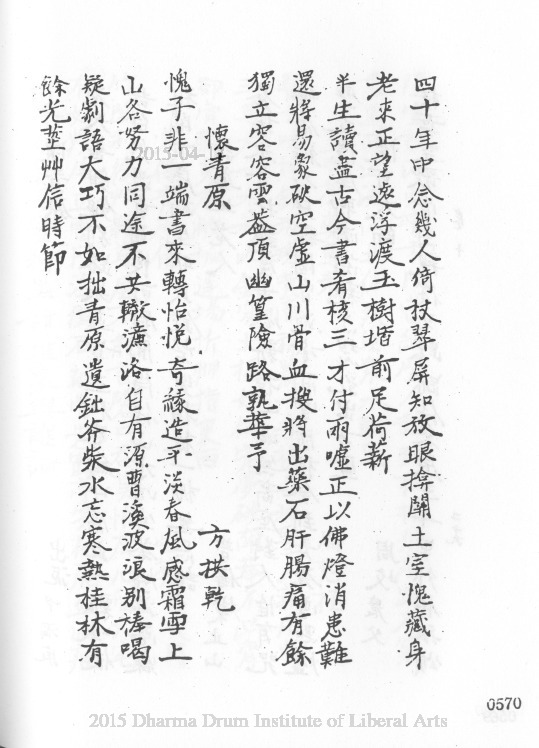 四十年中念幾人倚杖翠屏知放眼揜關土室愧藏身
老來正望遠浮渡玉樹堦前足荷薪
半生讀盡古今書肴核三才付兩噓正以佛燈消患難
還將易象破空虛山川骨血搜將出藥石肝腸痛有餘
獨立容容雲蓋頂幽篁險路孰華予
懷青原
方拱乾
愧子非一端書來轉怡悅奇緣造平淡春風感霜雪上
山各努力同途不共轍濂洛自有源曹溪波浪別棒喝
疑劇語大巧不如拙青原遺鈯斧柴水忘寒熱桂林有
餘光莖艸信時節
0570
2015 Dharma Drum Institute of Liberal Arts